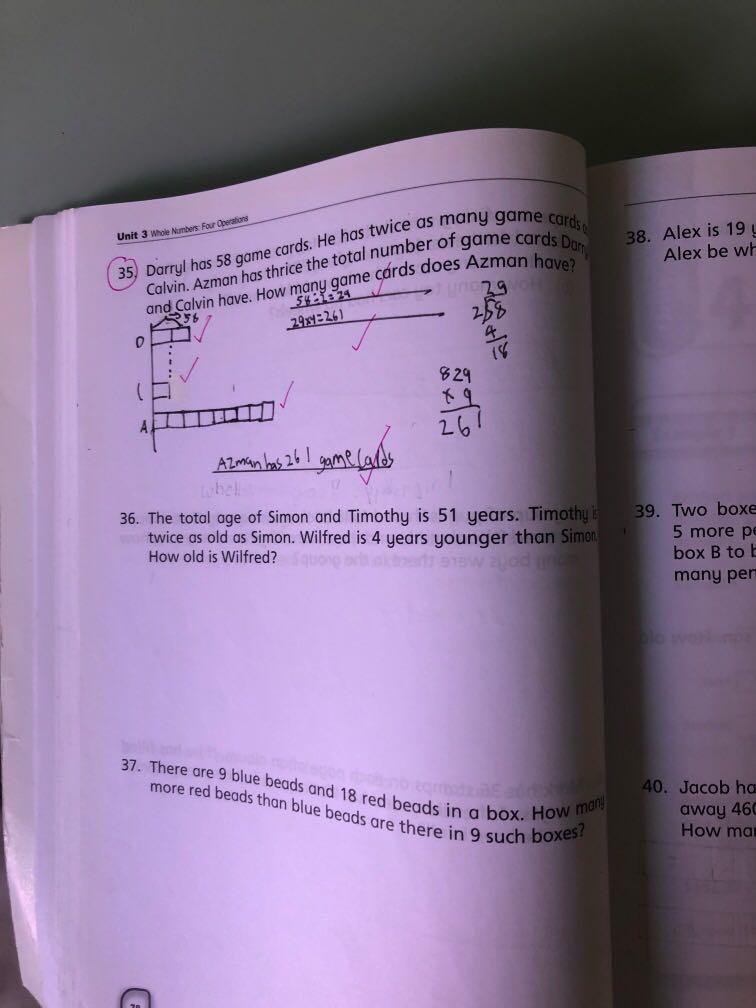 Unit 3 Whole Numbers: Four Operations
35. Darryl has 58 game cards. He has twice as many game cards
Calvin. Azman has thrice the total number of game cards
and Calvin have. How many game cards does Azman have?
58÷2=29
29x9=261
58
D
C
A
29
2 58
4
18
829
x 9
261
Azman has 261 game cards
36. The total age of Simon and Timothy is 51 years. Timothy
twice as old as Simon. Wilfred is 4 years younger than Simon.
How old is Wilfred?
37. There are 9 blue beads and 18 red beads in a box. How many
more red beads than blue beads are there in 9 such boxes?
38. Alex is 19
Alex be
39. Two
5 more
box B to
many
40. Jacob
away
How